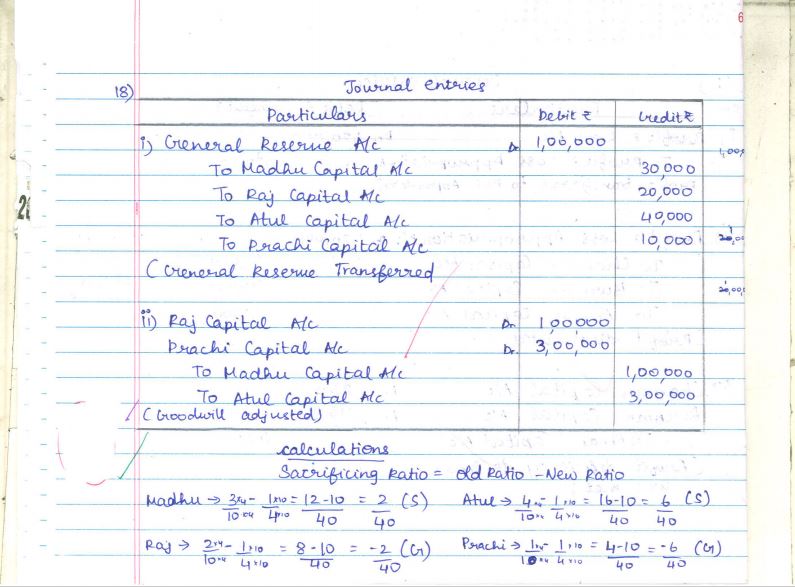 6
18) Journal entries
Particulars Debit ₹ Credit ₹
i) General Reserve A/c Dr 1,00,000
To Madhu Capital A/c 30,000
To Raj Capital A/c 20,000
To Atul Capital A/c 40,000
To Prachi Capital A/c 10,000
(General Reserve Transferred
ii) Raj Capital A/c Dr. 1,00,000
Prachi Capital A/c Dr. 3,00,000
To Madhu Capital A/c 1,00,000
To Atul Capital A/c 3,00,000
(Goodwill adjusted)
calculations
Sacrificing Ratio = old Ratio - New Ratio
Madhu → 3×4/10×4 - 1×10/4×10 = 12-10/40 = 2/40 (S) Atul → 4×4/10×4 - 1×10/4×10 = 16-10/40 = 6/40 (S)
Raj → 2×4/10×4 - 1×10/4×10 = 8-10/40 = -2/40 (G) Prachi → 1×4/10×4 - 1×10/4×10 = 4-10/40 = -6/40 (G)